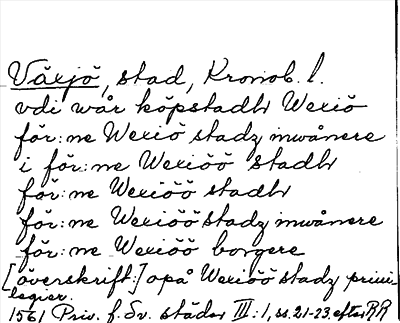 Växjö, stad, Kronob. l.
vdi wår köpstadh Wexiö
för:ne Wexiö stadz inwånere
i för:ne Wexiöö stadh
för:ne Wexiöö stadh
för:ne Wexiöö stadz inwånere
för:ne Wexiöö borgere
[överskrift:] opå Wexiöö stadz privi-
legier.
1561 Priv. f. Sv. städer III:1, ss. 21-23 efter RR